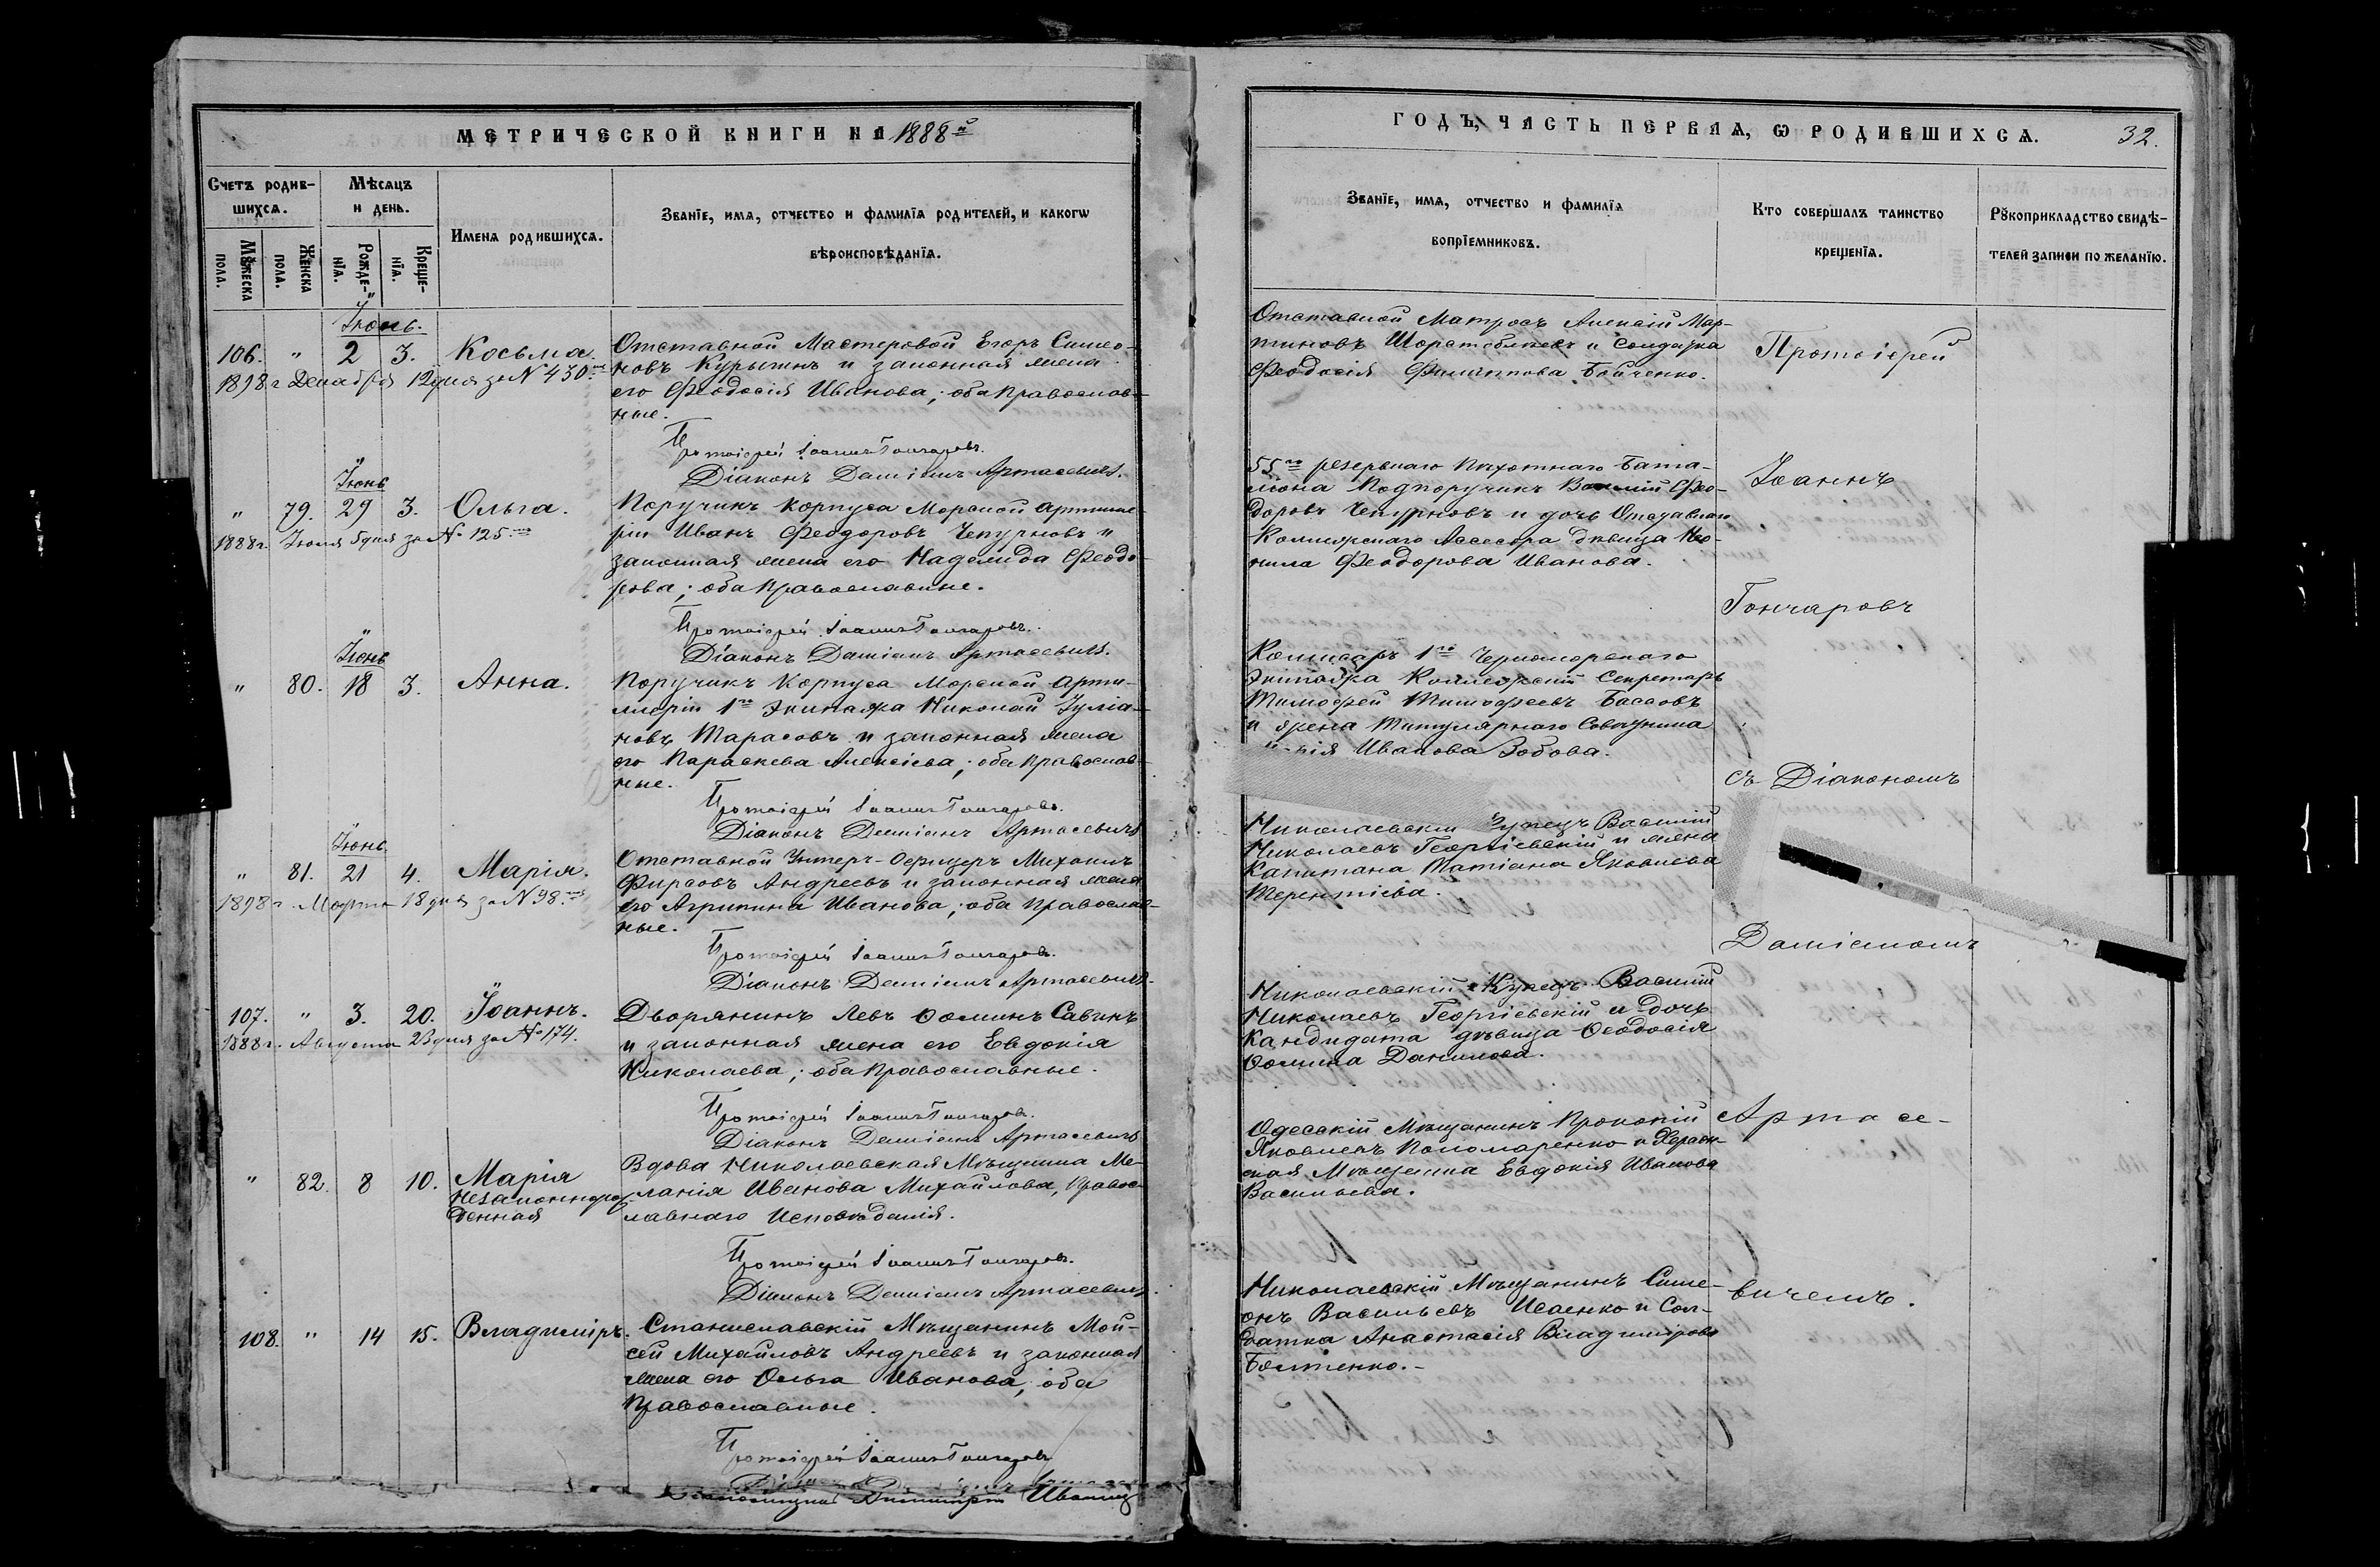 МЕТРИЧЕСКОЙ КНИГИ НА 1888й
Счетъ родив-
шихся.
Мѣсяцъ
и день.
Имена родившихся.
Званіе, имя, отчество и фамилія родителей, и какогѡ
вѣроисповѣданія.
Мꙋжеска
пола.
Женска
пола.
Рожде-
нія.
Креще-
нія.
Іюнь.
106. " 2 3. Косьма. Отставной Мастеровой Егоръ Симео-
новъ Курыгинъ и законная жена
1898 г Декабря 12 дня за N 430.
его Феодосія Иванова; оба православ-
ные.
Протоіерей Іоаннъ Гончаровъ.
Діаконъ Даміанъ Артасевичъ.
Іюнь
" 79. 29 3. Ольга. Поручикъ Корпуса Морской Артилле-
1888 г. Іюля 5 дня за № 125.
ріи Иванъ Феодоровъ Чепурновъ и
законная жена его Надежда Феодо-
рова; оба православные.
Протоіерей Іоаннъ Гончаровъ.
Діаконъ Даміанъ Артасевичъ.
Іюнь
" 80. 18 3. Анна. Поручикъ Корпуса Морской Арти-
ллеріи 1го Экипажа Николай Іуліа-
новъ Тарасовъ и законная жена
его Параскева Алексіева; оба православ-
ные.
Протоіерей Іоаннъ Гончаровъ.
Діаконъ Даміанъ Артасевичъ
Іюнь
" 81. 21 4. Марія. Отставной Унтеръ-Офицеръ Михаилъ
Фирсовъ Андреевъ и законная жена
1898 г. Марта 18 дня за N 98.
его Агрипина Иванова; оба православ-
ные.
Протоіерей Іоаннъ Гончаровъ.
Діаконъ Даміанъ Артасевичъ.
107. " 3. 20. Іоаннъ. Дворянинъ Левъ Ѳоминъ Савинъ
1888 г. Августа 23 дня за № 174.
и законная жена его Евдокія
Николаева; оба православные.
Протоіерей Іоаннъ Гончаровъ.
Діаконъ Даміанъ Артасевичъ
" 82. 8 10. Марія Вдова Николаевская Мѣщанка Ме-
незаконнорож ланія Иванова Михайлова, правос-
денная лавнаго исповѣданія.
Протоіерей Іоаннъ Гончаровъ.
Діаконъ Даміанъ Артасевичъ.
108. " 14 15. Владиміръ. Станиславскій Мѣщанинъ Мой-
сей Михайловъ Андреевъ и законная
жена его Ольга Иванова; оба
православные.
Протоіерей Іоаннъ Гончаровъ
ГОДЪ, ЧАСТЬ ПЕРВАЯ, Ѡ РОДИВШИХСЯ. 32.
Званіе, имя, отчество и фамилія
вопріемниковъ.
Кто совершалъ таинство
крещенія.
Рꙋкоприкладство свидѣ-
телей записи по желанію.
Отставной Матросъ Алексій Мар-
тиновъ и Солдатка
Феодосія Филиппова Бойченко.
Протоіерей
55го резервнаго пѣхотнаго Бата-
ліона Подпоручикъ Василій Фео-
доровъ Чепурновъ и дочь Отставнаго
Коллежскаго Ассесора дѣвица Нео-
нила Феодорова Иванова.
Іоаннъ
Гончаровъ
Комисаръ 1го Черноморскаго
Экипажа Коллежскій Секретарь
Тимофей Тимофеевъ Бассовъ
и жена Титулярнаго Совѣтника
Иванова Зобова.
съ Діакономъ
Николаевскій Купецъ Василій
Николаевъ Георгіевскій и жена
Капитана Татіана Яковлева
Терентіева.
Даміаномъ
Николаевскій Купецъ Василій
Николаевъ Георгіевскій и дочь
Кандидата дѣвица Ѳеодосія
Ѳомина Данилова.
Одесскій Мѣщанинъ Прокопій
Яковлевъ Пономаренко и Херсон-
ская Мѣщанка Евдокія Иванова
Васильева.
Артасе-
Николаевскій Мѣщанинъ Симе-
онъ Васильевъ Исаенко и Сол-
датка Анастасія Владимірова
Болтенко.-
вичемъ.